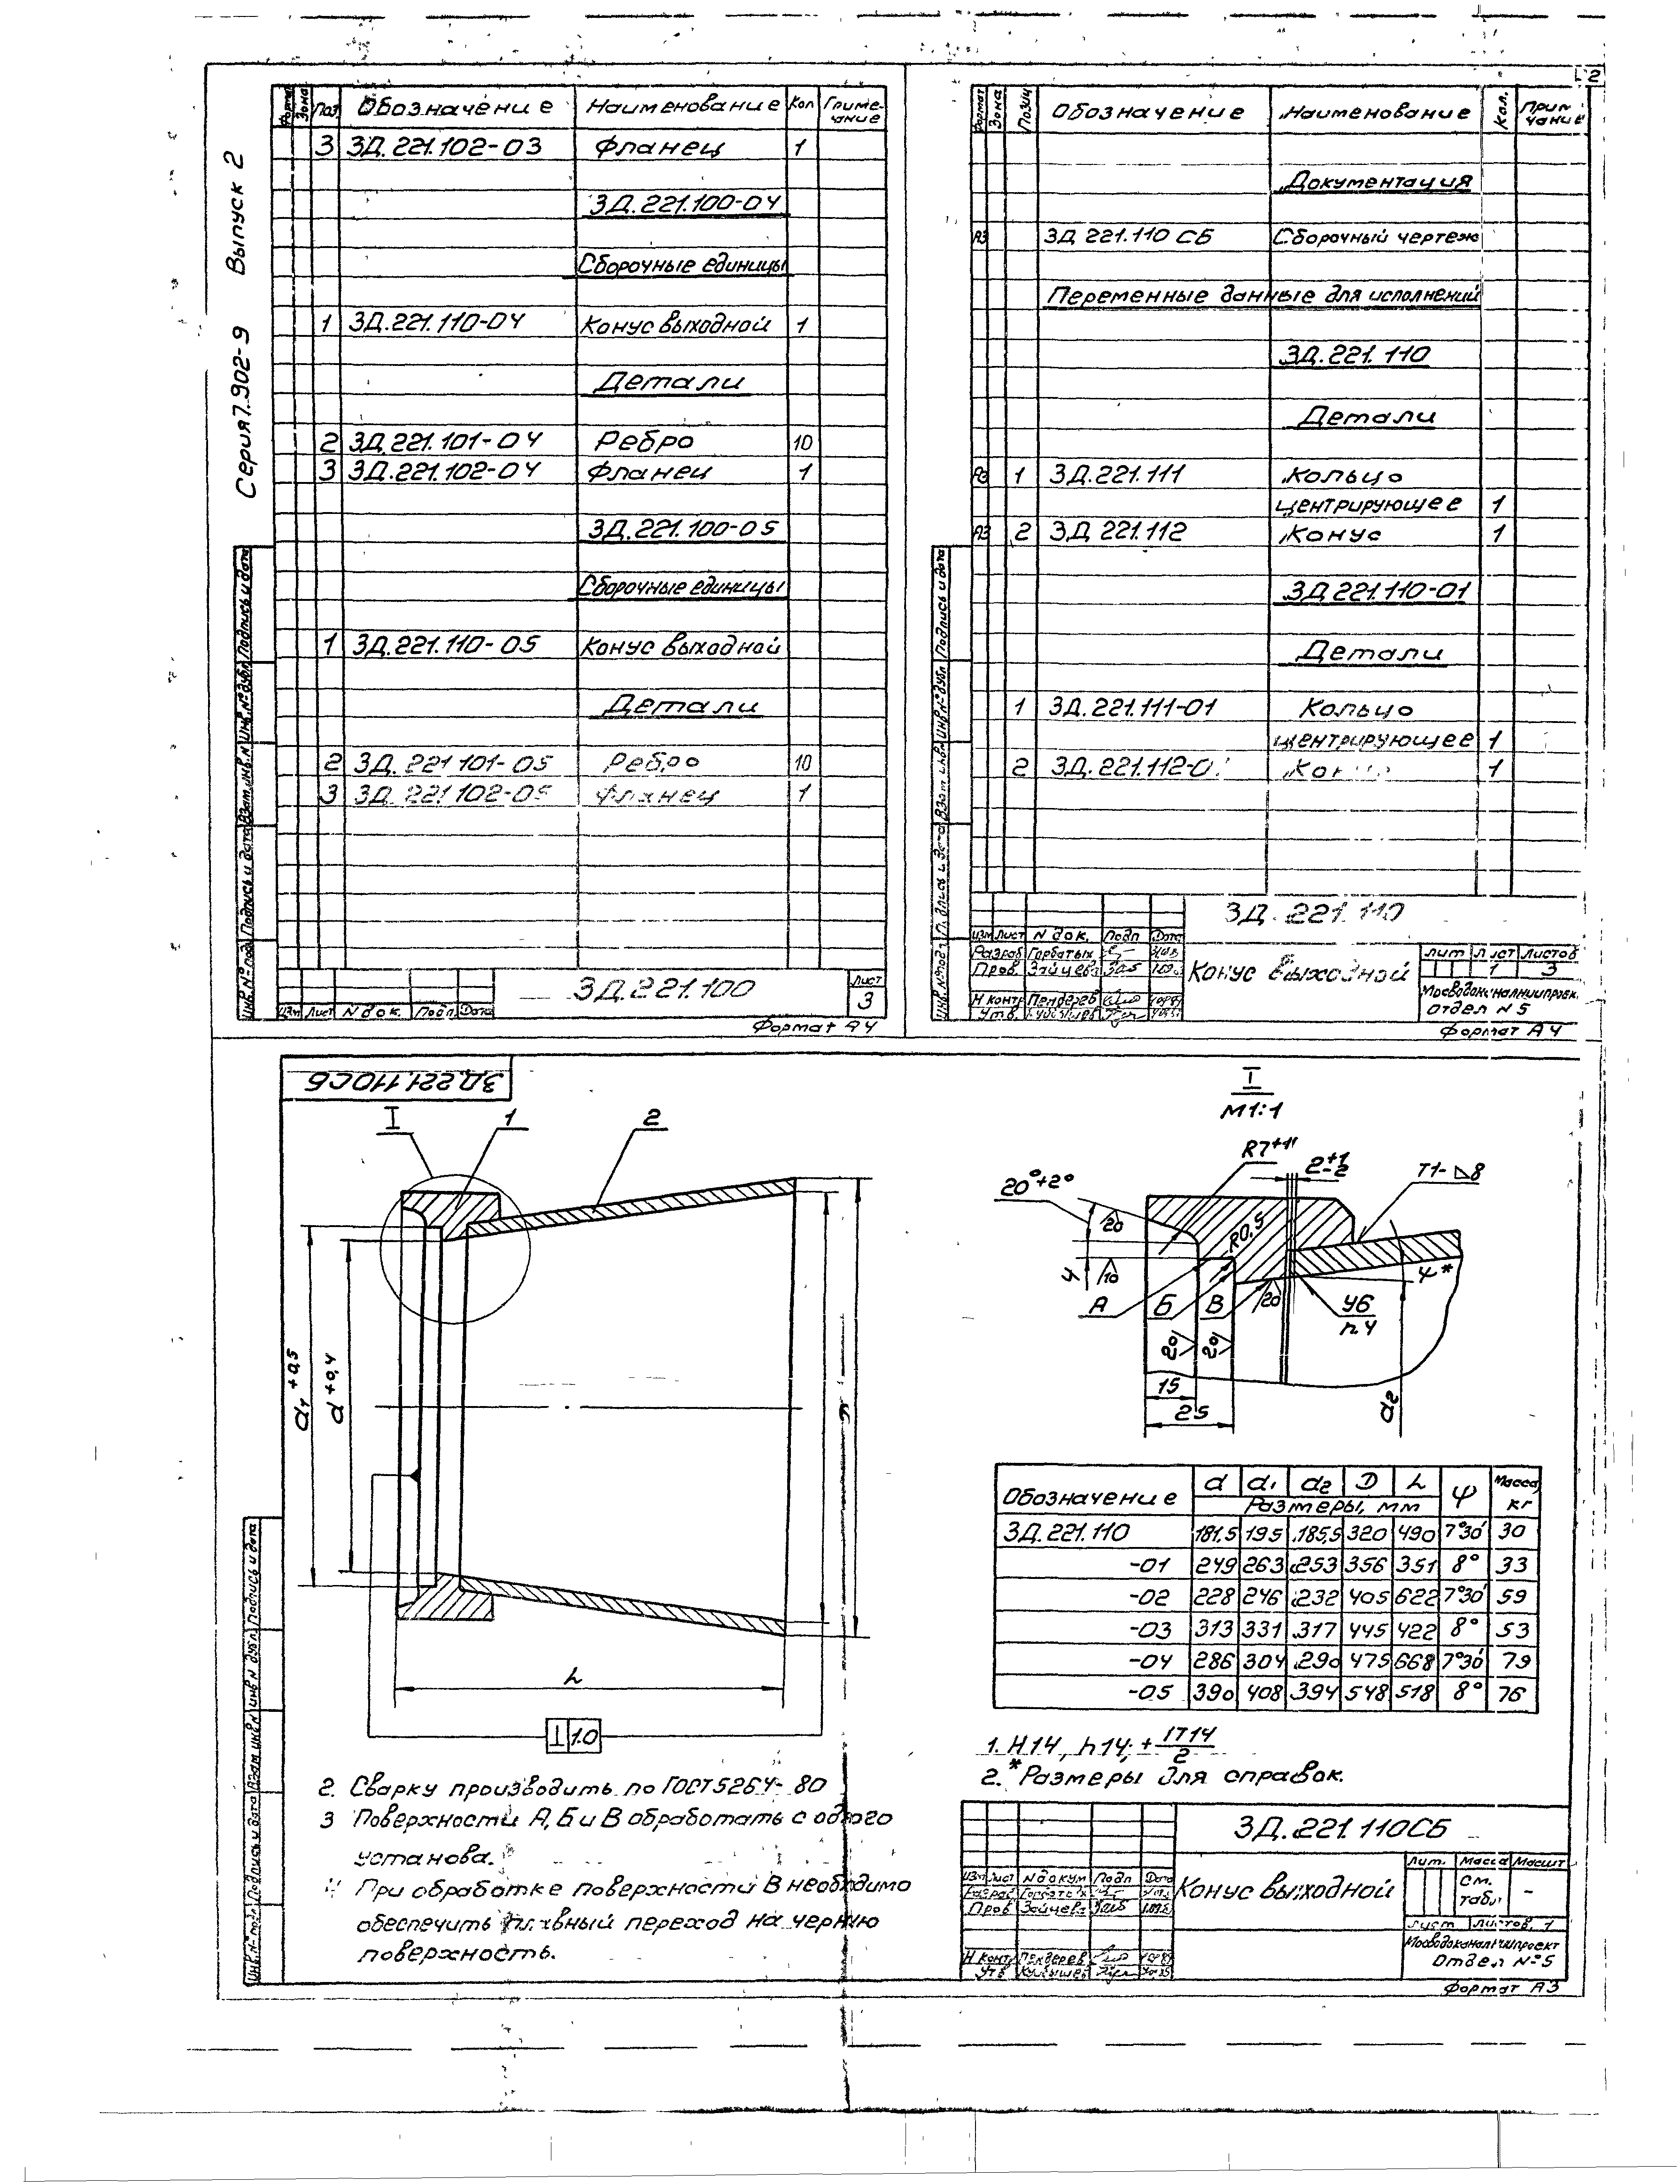 2
Серия 7.902-9 Выпуск 2
Формат Зона Поз. Обозначение Наименование Кол Приме-чание
3 3Д.221.102-03 Фланец 1
3Д.221.100-04
Сборочные единицы
1 3Д.221.110-04 Конус выходной 1
Детали
2 3Д.221.101-04 Ребро 10
3 3Д.221.102-04 Фланец 1
3Д.221.100-05
Сборочные единицы
1 3Д.221.110-05 Конус выходной
Детали
2 3Д.221.101-05 Ребро 10
3 3Д.221.102-05 Фланец 1
Инв.№ подл. Подпись и дата Взам.инв.N Инв.№ дубл Подпись и дата
3Д.221.100
Лист
3
Изм Лист N док. Подп. Дата
Формат А4
Формат Зона Позиц Обозначение Наименование Кол. Прим чание
Документация
А3 3Д 221.110 СБ Сборочный чертеж
Переменные данные для исполнений
3Д.221.110
Детали
А3 1 3Д.221.111 Кольцо
центрирующее 1
А3 2 3Д 221.112 Конус 1
3Д 221.110-01
Детали
1 3Д.221.111-01 Кольцо
центрирующее 1
2 3Д.221.112-0 Кон 1
Инв.№ подл Подпись и дата Взам инв.N Инв.№ дубл Подпись и дата
3Д.221.110
Изм Лист N док. Подп Дата
Разраб Горбатых
Пров. Зайцева
Н контр Пендерев
Утв.
Конус выходной
Лит Лист Листов
1 3
Мосводоканалниипроек.
Отдел N 5
Формат А4
3Д.221.110СБ
I 1 2
d₁ +0,5
d +0,4
D
L
⊥ 1.0
I
М1:1
R7+1
2+1-2
Т1-⊿8
20°+2°
20
R0,5
4
10
А Б В
20
У6
п4
ψ*
20 20
15
25
d2
Обозначение d d₁ d2 D L ψ Масса, кг
Размеры, мм
3Д.221.110 181,5 195 185,5 320 490 7°30' 30
-01 249 263 253 356 351 8° 33
-02 228 246 232 405 622 7°30' 59
-03 313 331 317 445 422 8° 53
-04 286 304 290 475 668 7°30' 79
-05 390 408 394 548 518 8° 76
1. Н14, h14; ± IT14/2
2.* Размеры для справок.
2. Сварку производить по ГОСТ 5264-80
3 Поверхности А, Б и В обработать с одного
установа.
4 При обработке поверхности В необходимо
обеспечить плавный переход на черную
поверхность.
Инв.№ подл. Подпись и дата Взам инв.N Инв N дубл. Подпись и дата
3Д.221.110СБ
Изм Лист N докум Подп Дата
Разраб Горбатых
Пров Зайцева
Н контр Пендерев
Утв Кубышев
Конус выходной
Лит. Масса Масшт
см. табл -
Лист Листов 1
Мосводоканалниипроект
Отдел №5
Формат А3